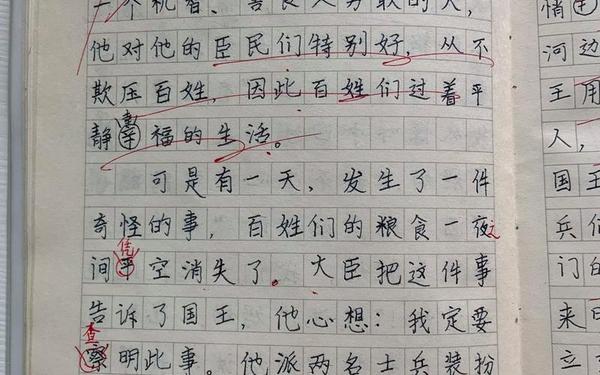 一个机智、善良又勇敢的人，
他对他的臣民们特别好，从不
欺压百姓，因此百姓们过着平
静幸福的生活。
可是有一天，发生了一件
奇怪的事，百姓们的粮食一夜之
间平空消失了。大臣把这件事
凭
告诉了国王，他心想：我定要
查
察明此事。他派两名士兵装扮
情
河边
王用
人，
国王
兵们
门的
来
立